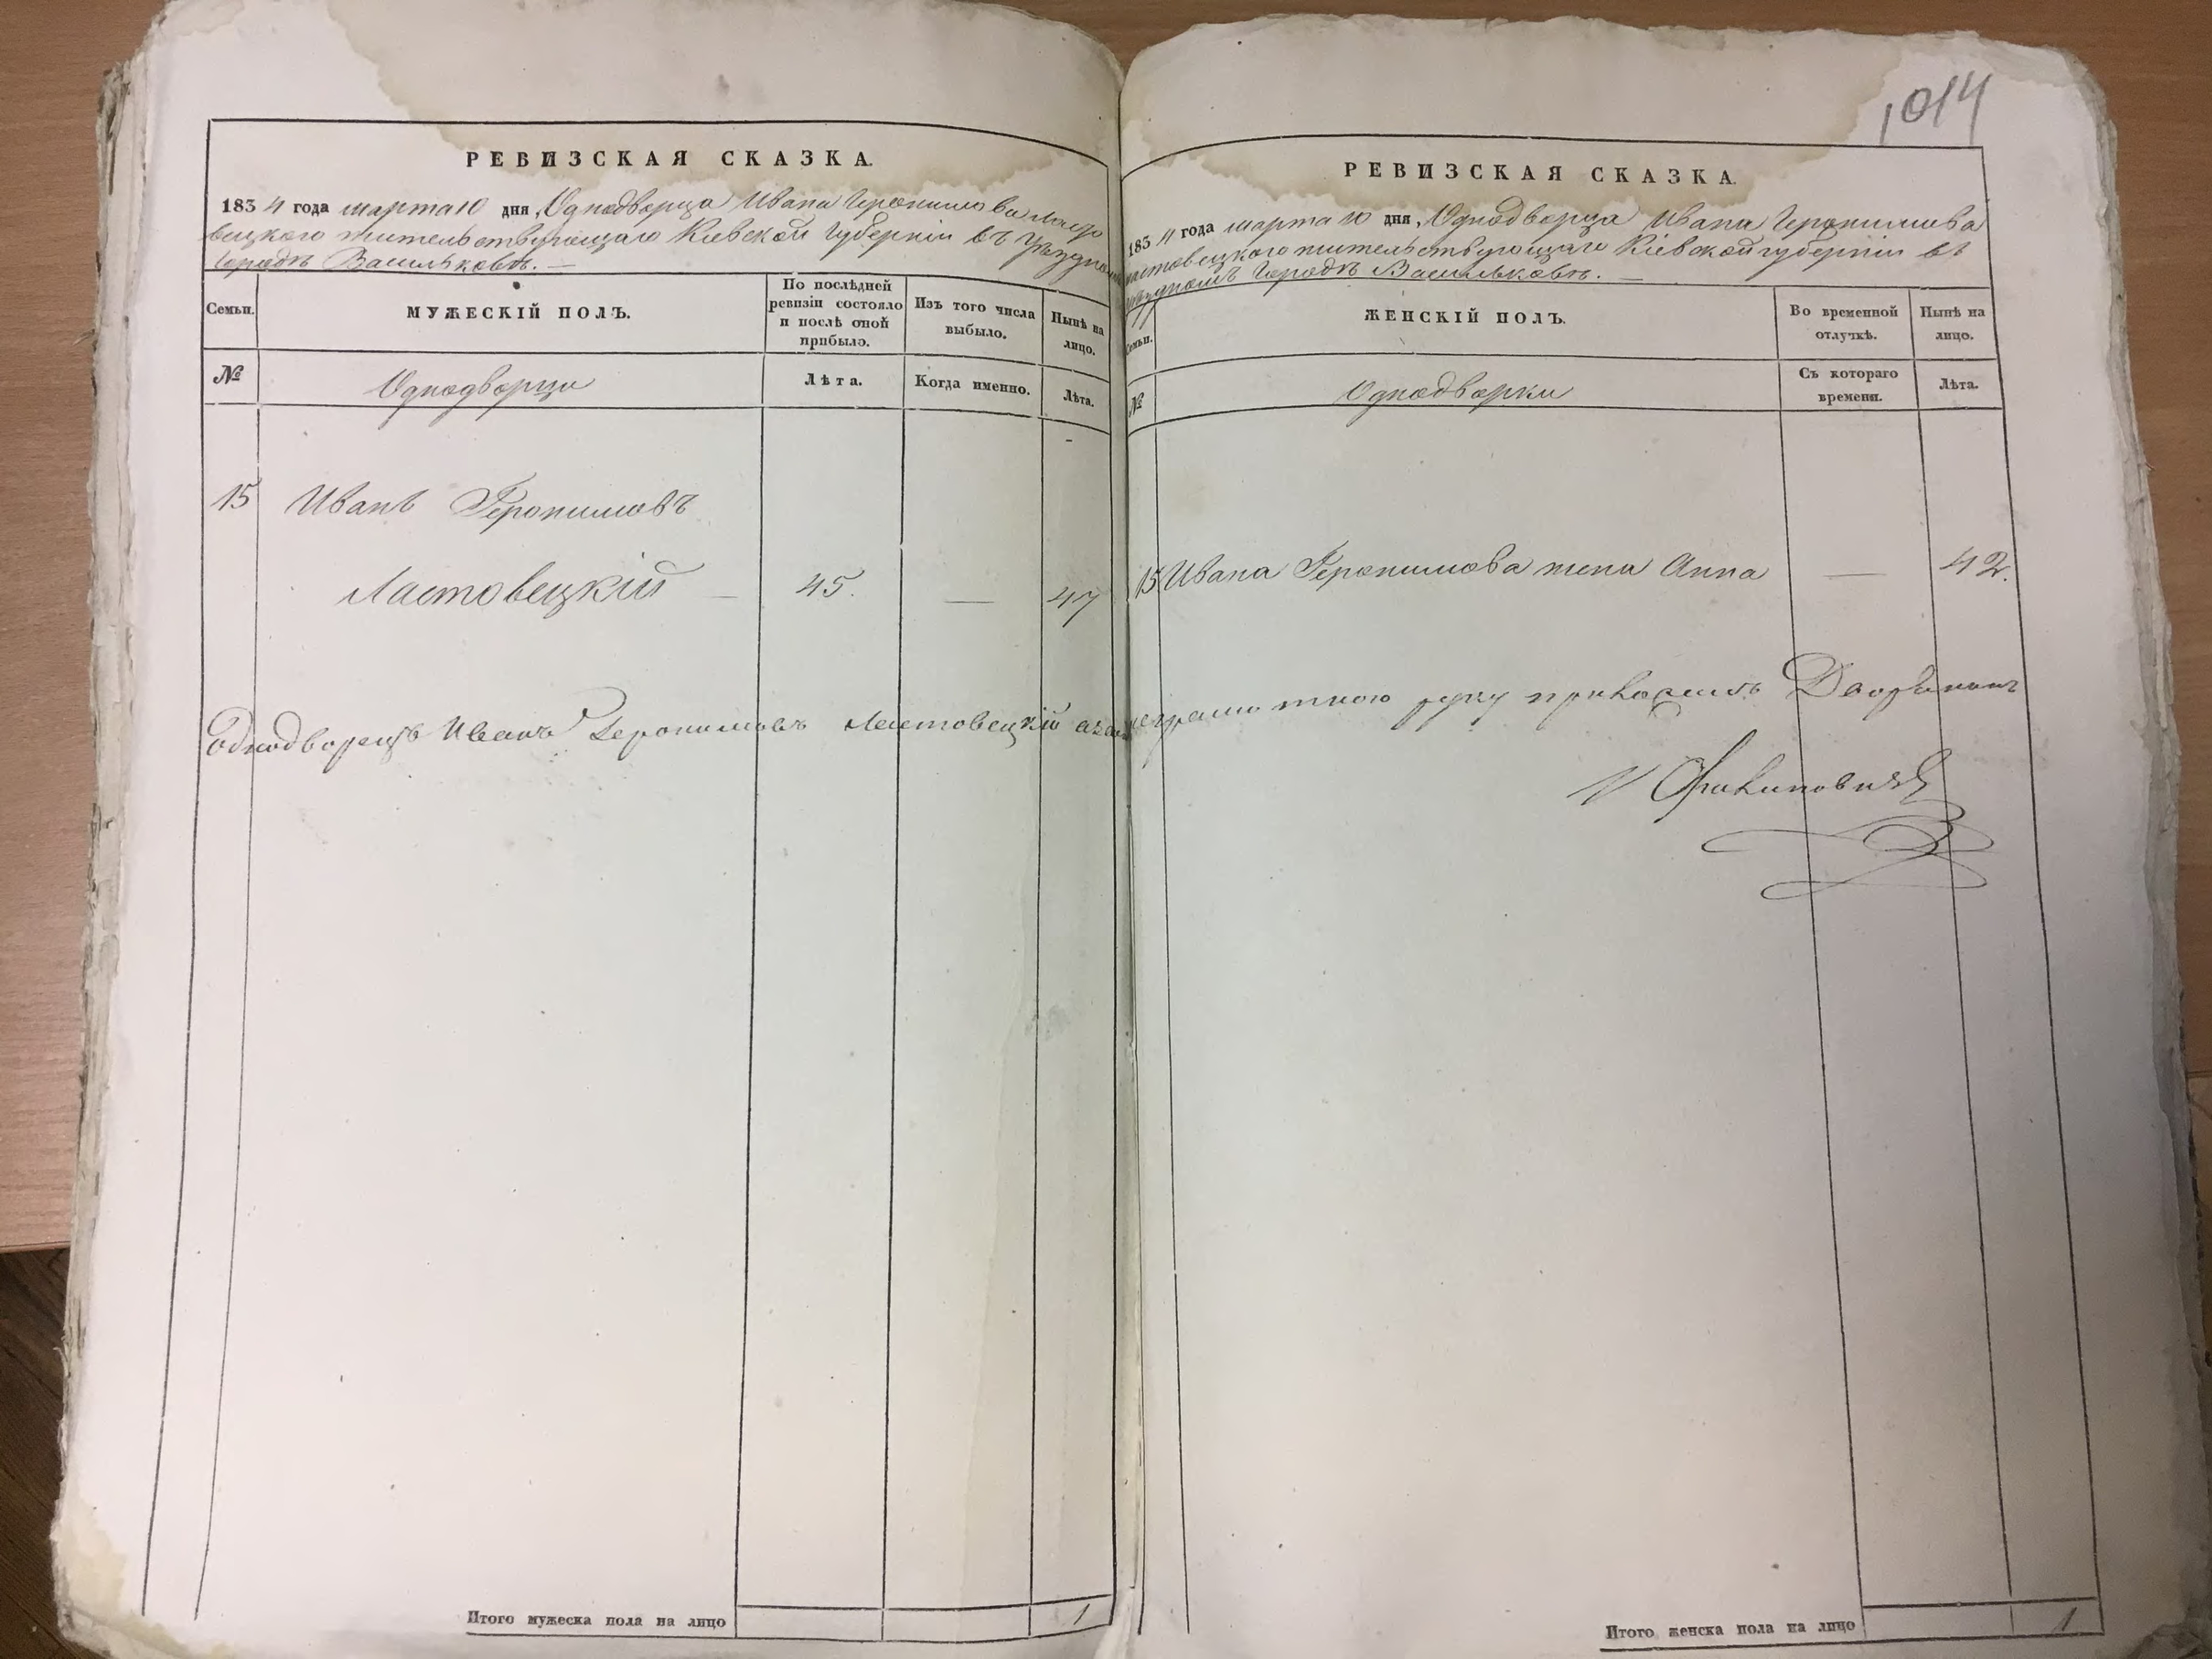 1014
РЕВИЗСКАЯ СКАЗКА.
1834 года марта 10 дня, Однодворца Ивана Геронимова Ласто
вецкого жительствующаго Кіевской Губерніи въ Уѣздномъ
Городѣ Васильковѣ.
Семьи.
МУЖЕСКІЙ ПОЛЪ.
По послѣдней
ревизіи состояло
и послѣ оной
прибыло.
Изъ того числа
выбыло.
Нынѣ на
лицо.
№
Однодворцы
Лѣта.
Когда именно.
Лѣта.
15 Иванъ Геронимовъ
Ластовецкій — 45. — 47
Однодворецъ Иванъ Геронимовъ Ластовецкій а за
Итого мужеска пола на лицо 1
РЕВИЗСКАЯ СКАЗКА.
1834 года марта 10 дня, Однодворца Ивана Геронимова
Ластовецкого жительствующаго Кіевской губерніи въ
Уѣздномъ Городѣ Васильковѣ.
Семьи.
ЖЕНСКІЙ ПОЛЪ.
Во временной
отлучкѣ.
Нынѣ на
лицо.
№
Однодворки
Съ котораго
времени.
Лѣта.
15 Ивана Геронимова жена Анна — 42.
неграмотного руку приложилъ Дворянинъ
Итого женска пола на лицо 1